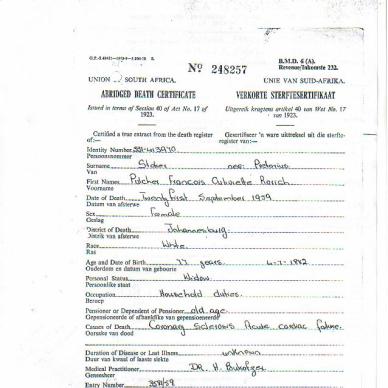 Nº 248257
B.M.D. 4 (A).
Revenue/Inkomste 232.
UNION SOUTH AFRICA. UNIE VAN SUID-AFRIKA.
ABRIDGED DEATH CERTIFICATE VERKORTE STERFTESERTIFIKAAT
Issued in terms of Section 40 of Act No. 17 of 1923. Uitgereik kragtens artikel 40 van Wet No. 17 van 1923.
Certified a true extract from the death register of:— Gesertifiseer 'n ware uittreksel uit die sterfteregister van:—
Identity Number
Persoonsnommer
Surname nee: Pretorius
Van
First Names Francois
Voorname
Date of Death Twenty first September 1959
Datum van afsterwe
Sex Female
Geslag
District of Death Johannesburg
Distrik van afsterwe
Race White
Ras
Age and Date of Birth 77 years. 4-7-1882
Ouderdom en datum van geboorte
Personal Status Widow
Persoonlike staat
Occupation Household duties.
Beroep
Pensioner or Dependent of Pensioner old age.
Gepensioeneerde of afhanklike van gepensioeneerde
Causes of Death Coronary Sclerosis Acute cardiac failure.
Oorsake van dood
Duration of Disease or Last Illness unknown
Duur van kwaal of laaste siekte
Medical Practitioner DR. H.
Geneesheer
Entry Number